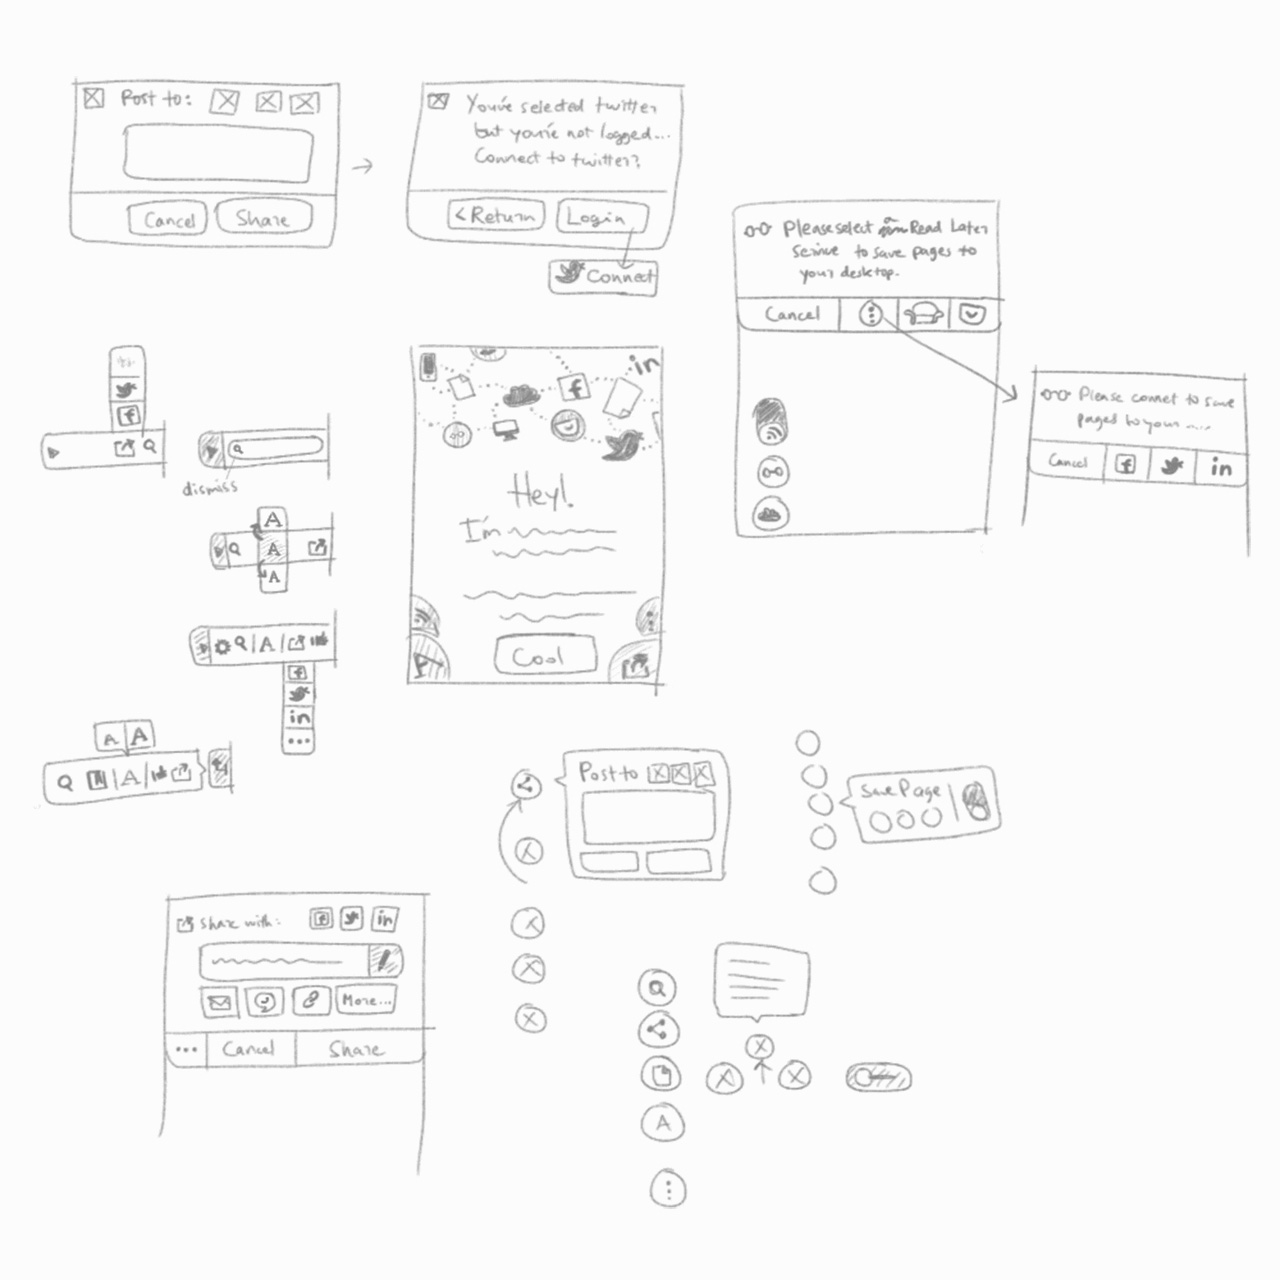 Post to:
Cancel
Share
You've selected twitter
but you're not logged...
Connect to twitter?
< Return
Login
Connect
Please select a Read Later
Service to save pages to
your desktop.
Cancel
Please connet to save
pages to your ....
Cancel
f
in
f
dismiss
A
A
A
A
f
in
...
A
A
A
in
f
Hey!
I'm
Cool
Post to
Save Page
Share with:
f
in
More...
...
Cancel
Share
A